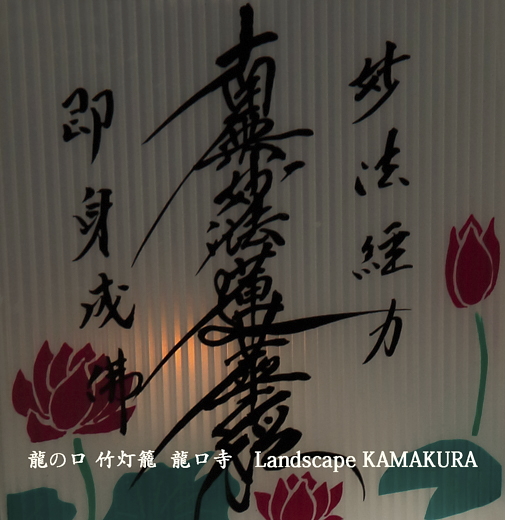 妙法経力
南無妙法蓮華経
即身成佛
龍の口 竹灯籠 龍口寺 Landscape KAMAKURA